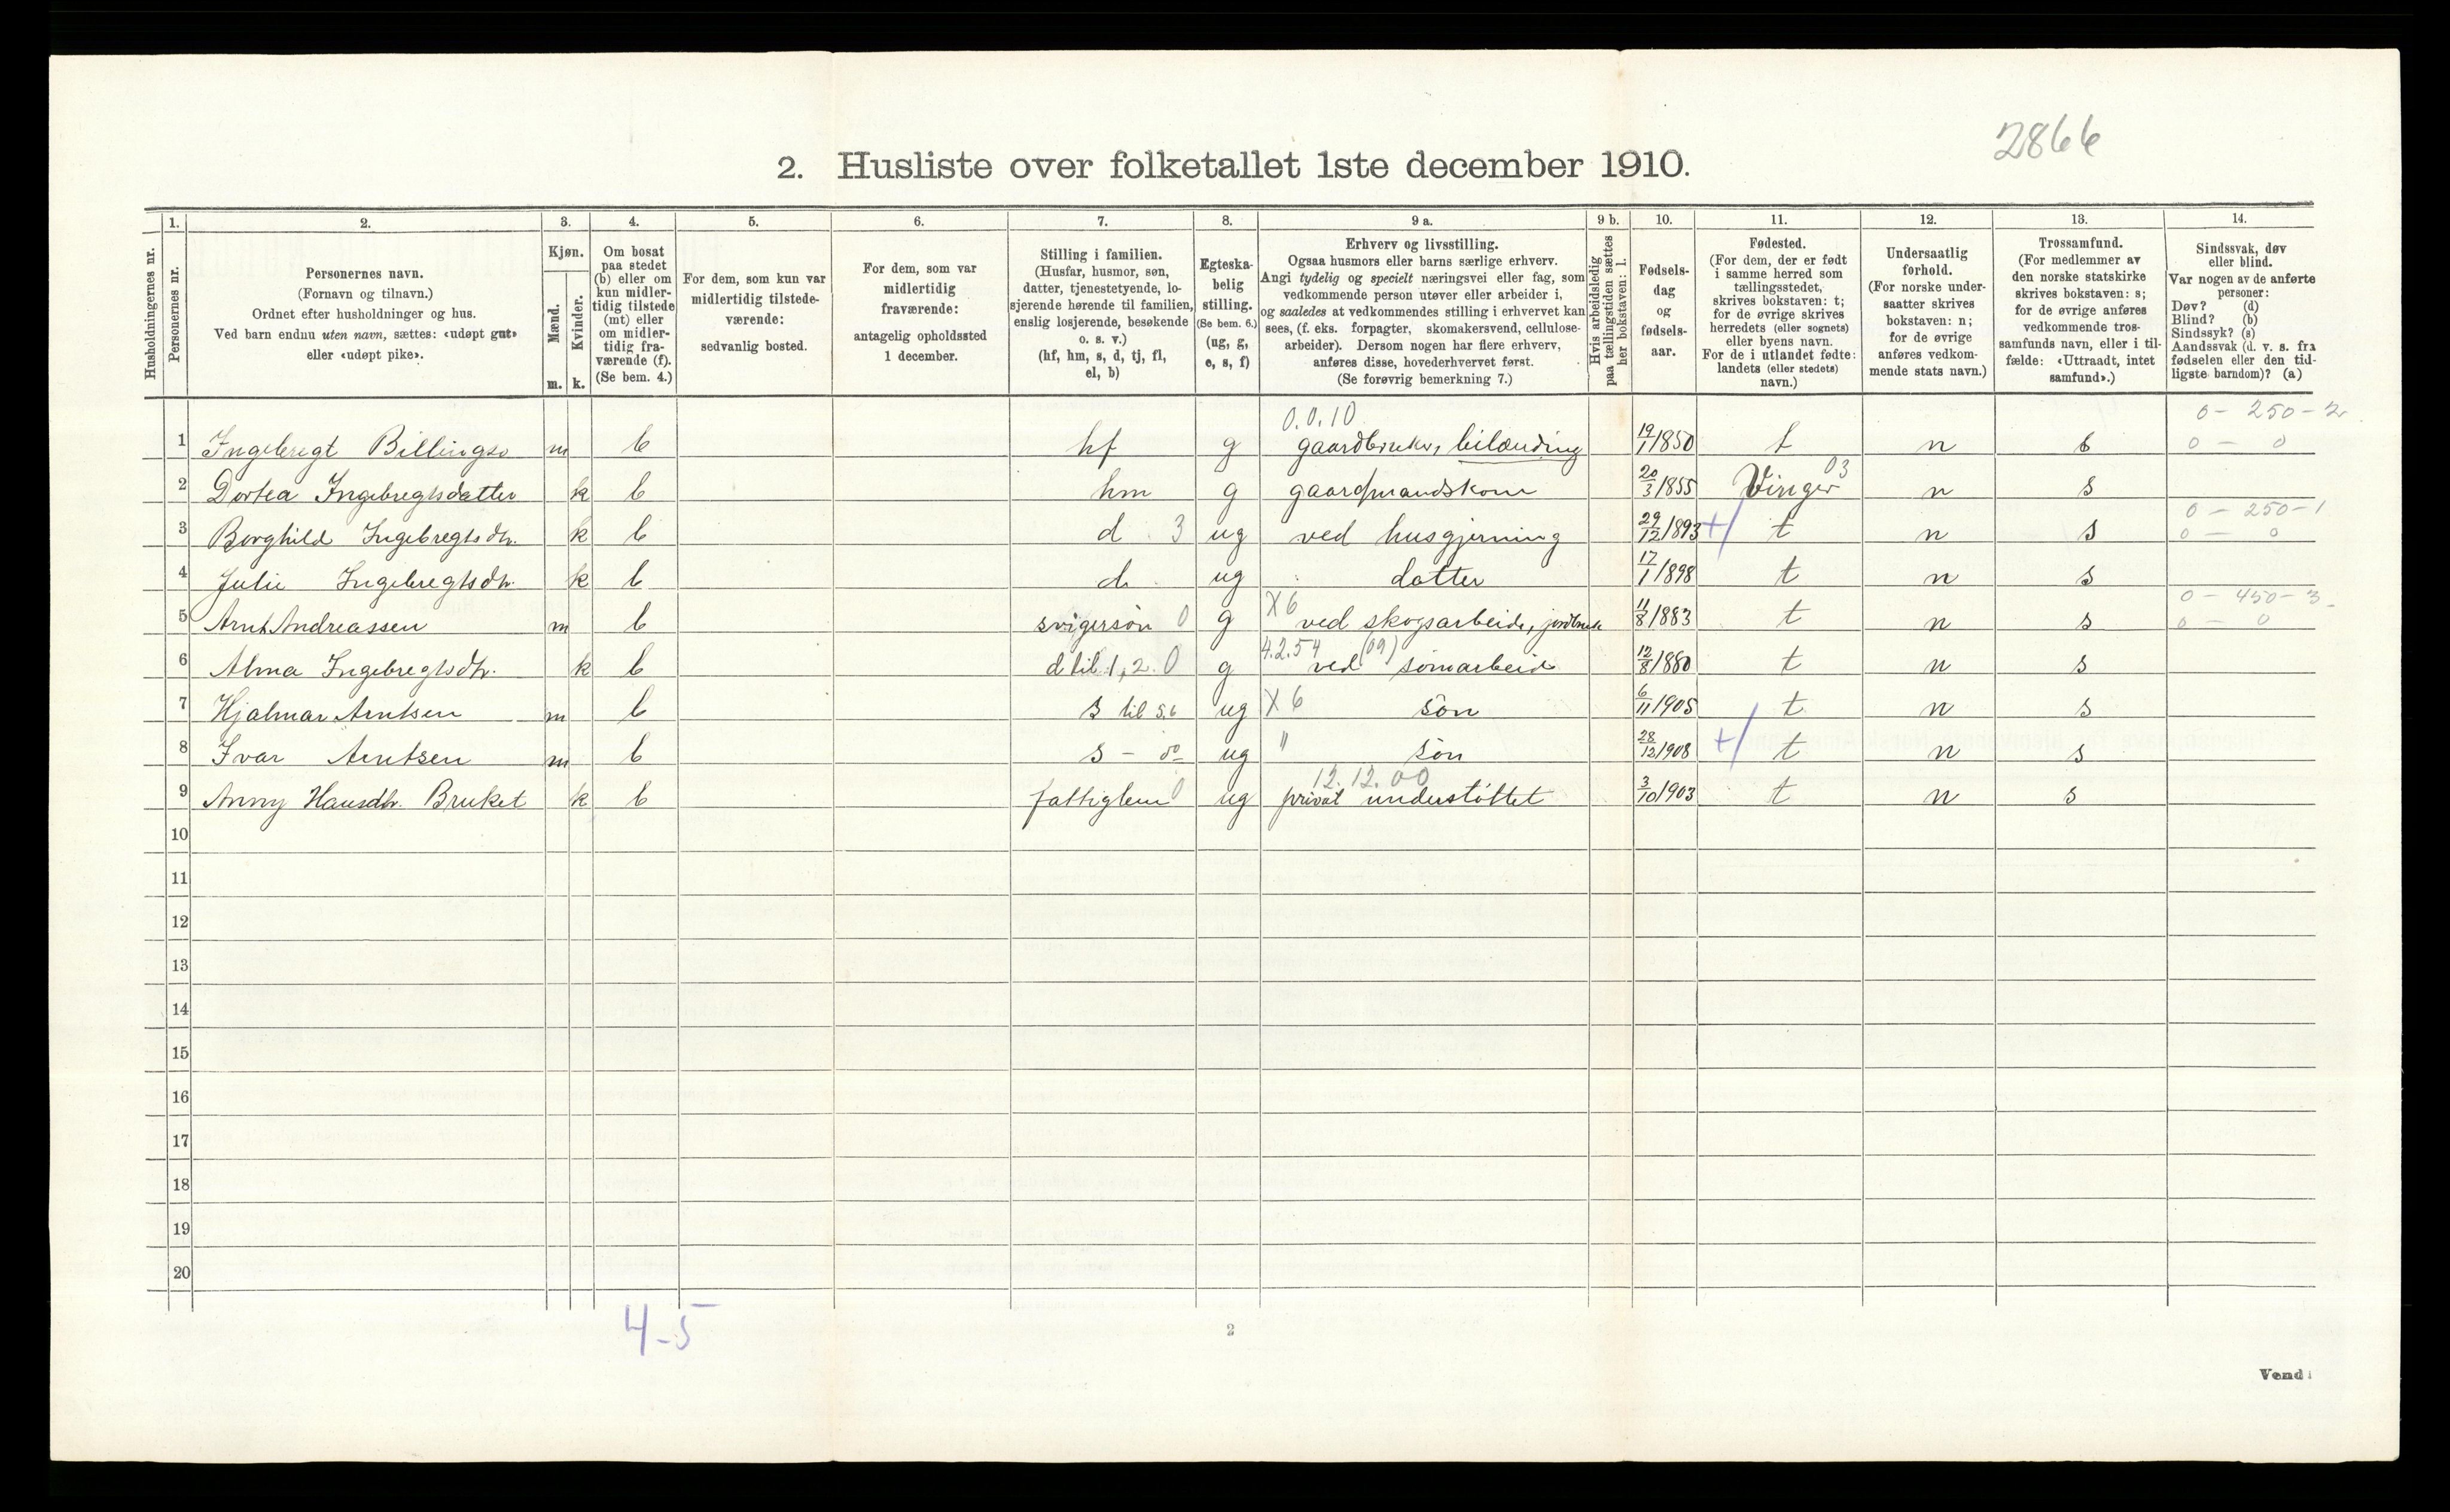 2866
2. Husliste over folketallet 1ste december 1910.
Husholdningernes nr.
1.
Personernes nr.
2.
Personernes navn.
(Fornavn og tilnavn.)
Ordnet efter husholdninger og hus.
Ved barn endnu uten navn, sættes: «udøpt gut»
eller «udøpt pike».
3.
Kjøn.
Mænd.
Kvinder.
m. k.
4.
Om bosat
paa stedet
(b) eller om
kun midler-
tidig tilstede
(mt) eller
om midler-
tidig fra-
værende (f).
(Se bem. 4.)
5.
For dem, som kun var
midlertidig tilstede-
værende:
sedvanlig bosted.
6.
For dem, som var
midlertidig
fraværende:
antagelig opholdssted
1 december.
7.
Stilling i familien.
(Husfar, husmor, søn,
datter, tjenestetyende, lo-
sjerende hørende til familien,
enslig losjerende, besøkende
o. s. v.)
(hf, hm, s, d, tj, fl,
el, b)
8.
Egteska-
belig
stilling.
(Se bem. 6.)
(ug, g,
e, s, f)
9 a.
Erhverv og livsstilling.
Ogsaa husmors eller barns særlige erhverv.
Angi tydelig og specielt næringsvei eller fag, som
vedkommende person utøver eller arbeider i,
og saaledes at vedkommendes stilling i erhvervet kan
sees, (f. eks. forpagter, skomakersvend, cellulose-
arbeider). Dersom nogen har flere erhverv,
anføres disse, hovederhvervet først.
(Se forøvrig bemerkning 7.)
9 b.
Hvis arbeidsledig
paa tællingstiden sættes
her bokstaven: l.
10.
Fødsels-
dag
og
fødsels-
aar.
11.
Fødested.
(For dem, der er født
i samme herred som
tællingsstedet,
skrives bokstaven: t;
for de øvrige skrives
herredets (eller sognets)
eller byens navn.
For de i utlandet fødte:
landets (eller stedets)
navn.)
12.
Undersaatlig
forhold.
(For norske under-
saatter skrives
bokstaven: n;
for de øvrige
anføres vedkom-
mende stats navn.)
13.
Trossamfund.
(For medlemmer av
den norske statskirke
skrives bokstaven: s;
for de øvrige anføres
vedkommende tros-
samfunds navn, eller i til-
fælde: «Uttraadt, intet
samfund».)
14.
Sindssvak, døv
eller blind.
Var nogen av de anførte
personer:
Døv? (d)
Blind? (b)
Sindssyk? (s)
Aandssvak (d. v. s. fra
fødselen eller den tid-
ligste barndom)? (a)
0.0.10 0 - 250 - 2
1 Ingebregt Billingso m b hf g gaardbruker, bilænding 19/1 1850 t n s 0 - 0
2 Dortea Ingebregtsdatter k b hm g gaardmandskone 20/3 1855 Vinger 03 n s
0 - 250 - 1
3 Borghild Ingebregtsdtr. k b d 3 ug ved husgjerning 29/12 1893 t n s 0 - 0
4 Julie Ingebregtsdtr. k b d ug datter 17/1 1898 t n s
X6 0 - 450 - 3
5 Arnt Andreassen m b svigersøn 0 g ved skogsarbeide, jordbruk 11/8 1883 t n s 0 - 0
4.2.54 (09)
6 Alma Ingebregtsdtr. k b d til 1, 2. 0 g ved sömarbeid 12/8 1880 t n s
7 Hjalmar Arntsen m b s til 5.6 ug X6 søn 6/11 1905 t n s
8 Ivar Arntsen m b s - do ug " søn 28/12 1908 t n s
12.12.00
9 Anny Hansdtr. Bruket k b fattiglem 0 ug privat understøttet 3/10 1903 t n s
10
11
12
13
14
15
16
17
18
19
20
4-5
2
Vend!